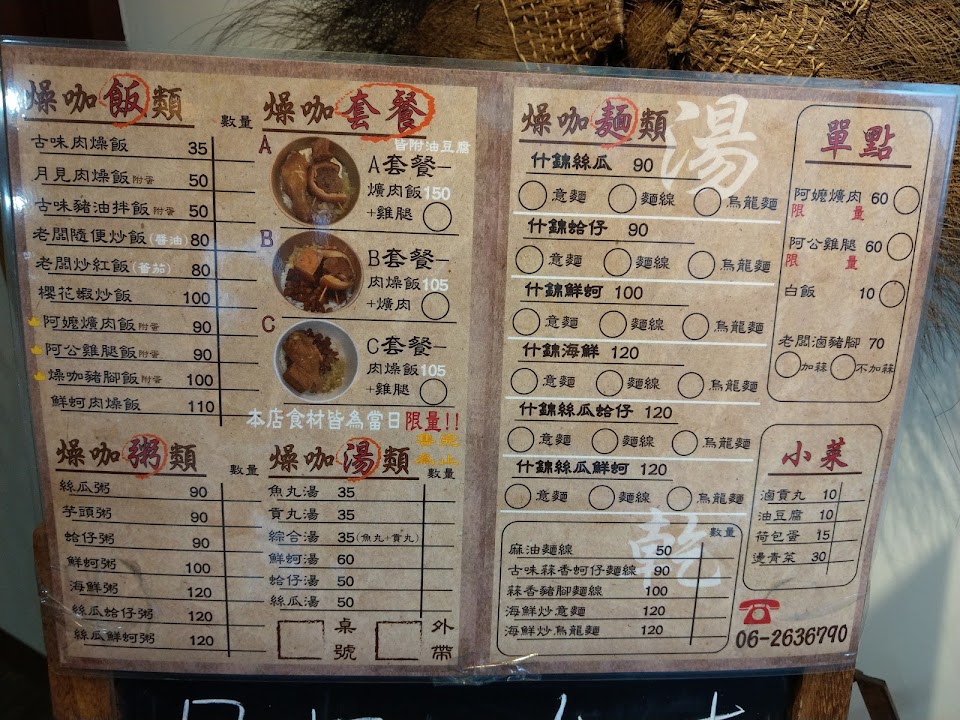 燥咖飯類
數量
古味肉燥飯 35
月見肉燥飯 附蛋 50
古味豬油拌飯 附蛋 50
老闆隨便炒飯(醬油) 80
老闆炒紅飯(蕃茄) 80
櫻花蝦炒飯 100
阿嬤爌肉飯 附蛋 90
阿公雞腿飯 附蛋 90
燥咖豬腳飯 附蛋 100
鮮蚵肉燥飯 110
燥咖套餐
皆附油豆腐
A
A套餐-
爌肉飯150
+雞腿
B
B套餐-
肉燥飯105
+爌肉
C
C套餐-
肉燥飯105
+雞腿
本店食材皆為當日限量!!
售完
為止
燥咖粥類
數量
絲瓜粥 90
芋頭粥 90
蛤仔粥 90
鮮蚵粥 100
海鮮粥 120
絲瓜蛤仔粥 120
絲瓜鮮蚵粥 120
燥咖湯類
數量
魚丸湯 35
貢丸湯 35
綜合湯 35(魚丸+貢丸)
鮮蚵湯 60
蛤仔湯 50
絲瓜湯 50
桌號
外帶
燥咖麵類
湯
什錦絲瓜 90
意麵 麵線 烏龍麵
什錦蛤仔 90
意麵 麵線 烏龍麵
什錦鮮蚵 100
意麵 麵線 烏龍麵
什錦海鮮 120
意麵 麵線 烏龍麵
什錦絲瓜蛤仔 120
意麵 麵線 烏龍麵
什錦絲瓜鮮蚵 120
意麵 麵線 烏龍麵
乾
數量
麻油麵線 50
古味蒜香蚵仔麵線 90
蒜香豬腳麵線 100
海鮮炒意麵 120
海鮮炒烏龍麵 120
單點
阿嬤爌肉 60
限量
阿公雞腿 60
限量
白飯 10
老闆滷豬腳 70
加蒜 不加蒜
小菜
滷貢丸 10
油豆腐 10
荷包蛋 15
燙青菜 30
06-2636790